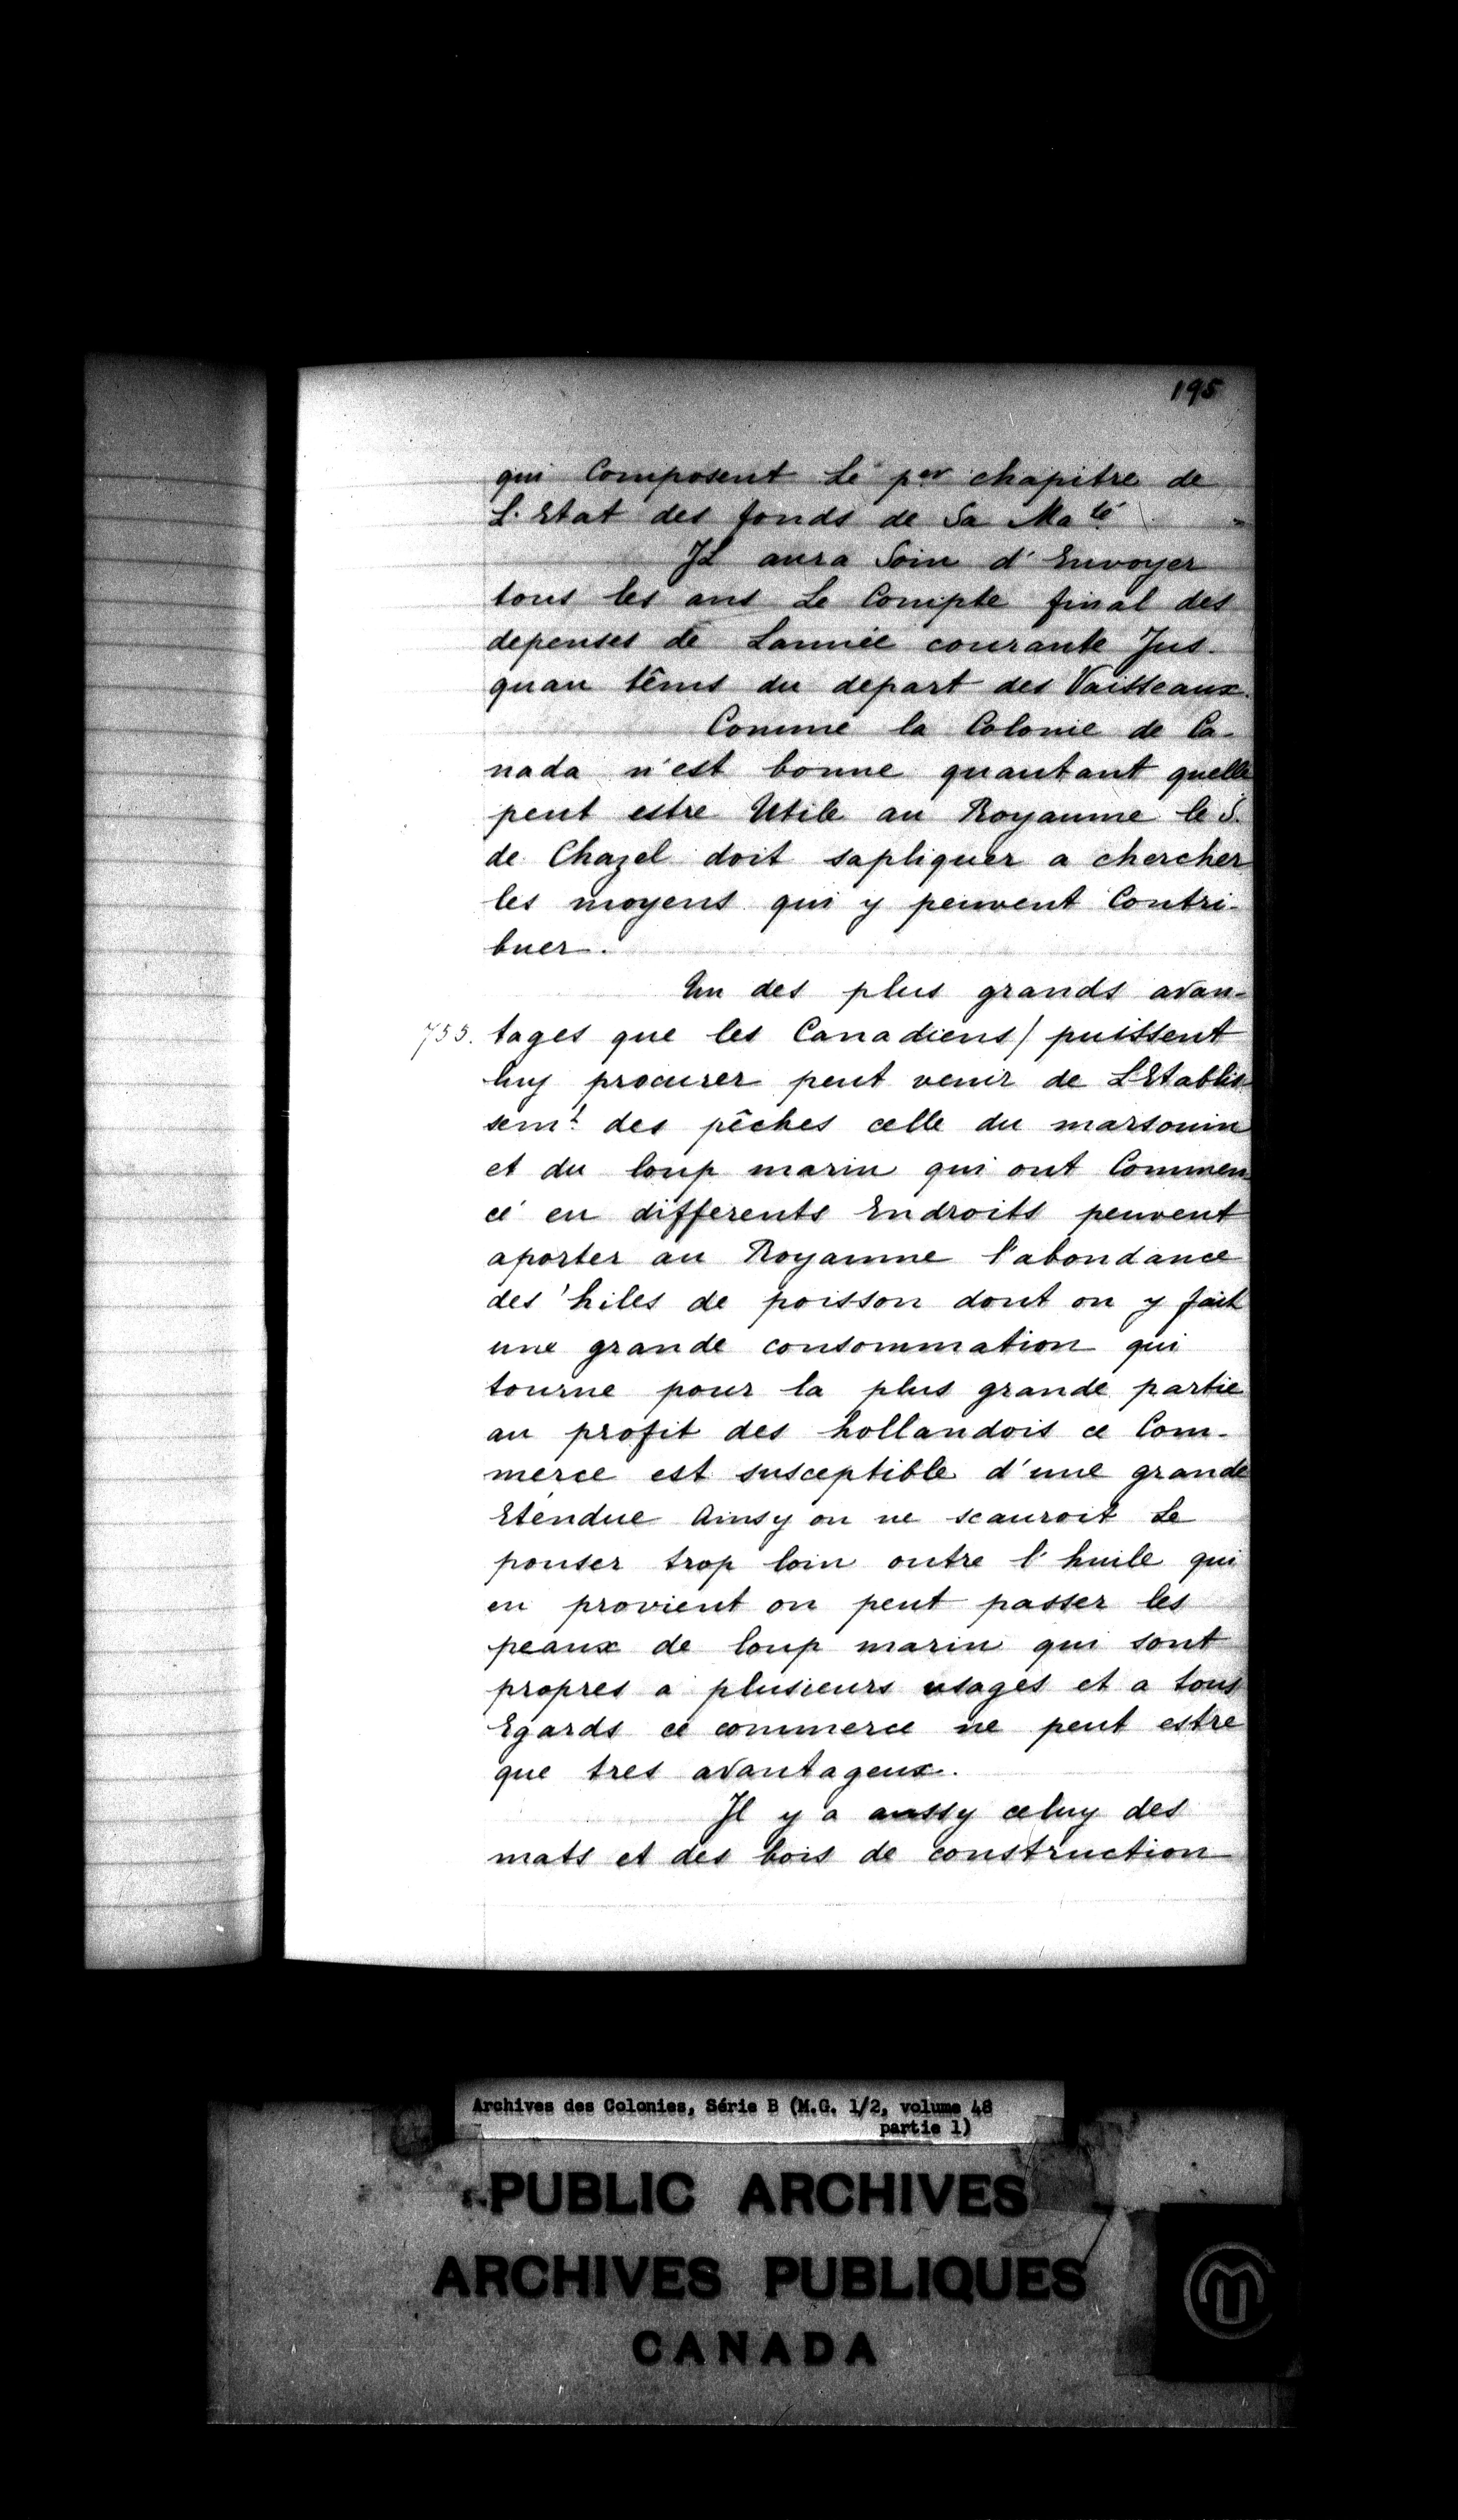 195
qui Composent Le per chapitre de
L'Estat des fonds de Sa Maté
Il aura Soin d'Envoyer
tous les ans Le Compte final des
depenses de Lannée courante Jus-
quau têms du depart des Vaisseaux.
Comme la Colonie de Ca-
nada n'est bonne quautant quelle
peut estre Utile au Royaume le S.
de Chazel doit sapliquer a chercher
les moyens qui y peuvent Contri-
buer.
Un des plus grands avan-
755. tages que les Canadiens/ puissent
luy procurer peut venir de L'Etablis
semt des pêches celle du marsouin
et du loup marin qui ont Commen-
cé en differents Endroits peuvent
aporter au Royaume l'abondance
des hiles de poisson dont on y fait
une grande consommation qui
tourne pour la plus grande partie
au profit des hollandois ce Com-
merce est susceptible d'une grande
Etendue Ainsy on ne scauroit Le
pouser trop loin outre l'huile qui
en provient on peut passer les
peaux de loup marin qui sont
propres a plusieurs usages et a tous
Egards ce commerce ne peut estre
que tres avantageux.
Il y a aussy celuy des
mats et des bois de construction
Archives des Colonies, Série B (M.G. 1/2, volume 48
partie 1)
PUBLIC ARCHIVES
ARCHIVES PUBLIQUES
CANADA